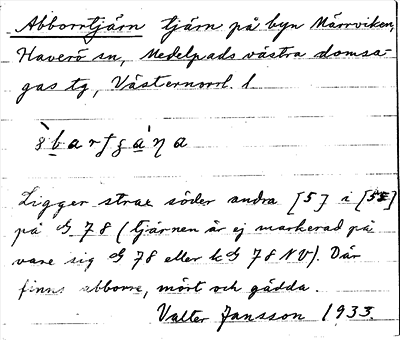 Abborrtjärn tjärn på byn Märrviken,
Haverö sn, Medelpads västra domsa-
gas tg, Västernorrl. l
Ligger strax söder andra [5] i [55]
på G 78 (tjärnen är ej markerad på
vare sig G 78 eller kG 78 NV). Där
finns abborre, mört och gädda.
Valter Jansson 1933.